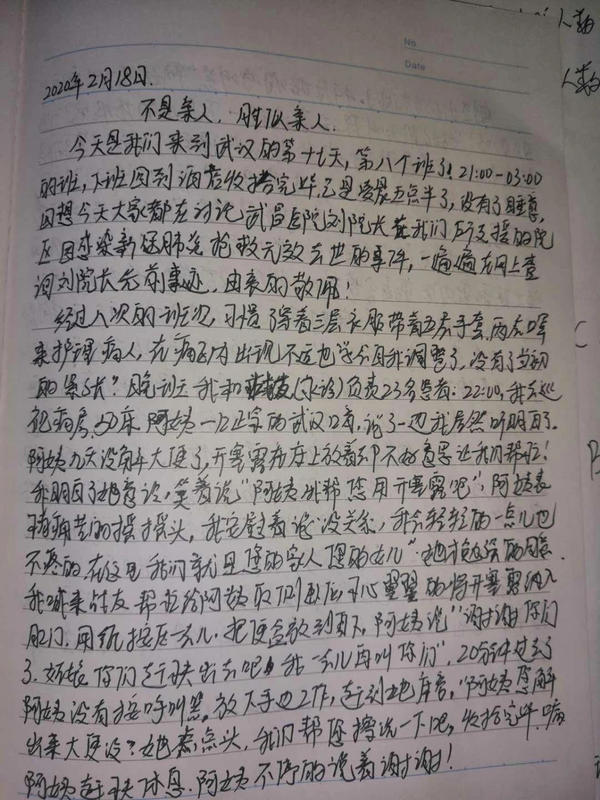 No
Date
人数
人数
2020年2月18日.
不是亲人，胜似亲人.
今天是我们来到武汉的第十七天，第八个班了，21:00-03:00
的班，下班回到酒店收拾完毕已是凌晨五点半了，没有了睡意，
回想今天大家都在讨论武昌医院刘院长在我们所支援的院
区因感染新冠肺炎抢救无效去世的事件，一遍遍在网上查
询刘院长先前事迹，由衷的敬佩！
经过八次的班次，习惯了穿着三层衣服带着五层手套，两层口罩
来护理病人，在病区内出现不适也学会自我调整了，没有了当初
的紧张？晚班我和负责23名患者：22:00，我去巡
视病房，50床阿姨一口正宗的武汉口音，说了一遍我居然听明白了。
阿姨九天没有解大便了，开塞露在床上放着却不好意思让我们帮忙！
我明白了她意说，笑着说“阿姨我帮您用开塞露吧”，阿姨表
情痛苦的摇摇头，我安慰着说“没关系，我会轻轻的一点儿也
不疼的，在这里我们就是您的家人您的女儿”
我喊来战友帮忙给阿姨取侧卧后小心翼翼的将开塞露纳入
肛门，用纸按压一会儿，把便盆放到身下，阿姨说“谢谢你们
了，姑娘你们赶快出去吧，我一会儿再叫你们”，20分钟过去了
阿姨没有按呼叫器，放下手边工作，赶到她床旁，“阿姨您解
出来大便没？她点点头，我们帮您擦洗一下吧，收拾完毕，嘱
阿姨赶快休息，阿姨不停的说着谢谢！